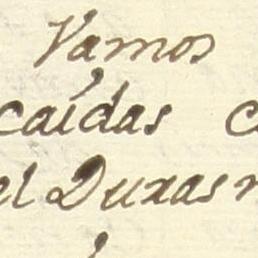 Vamos
caídas c
el Duras